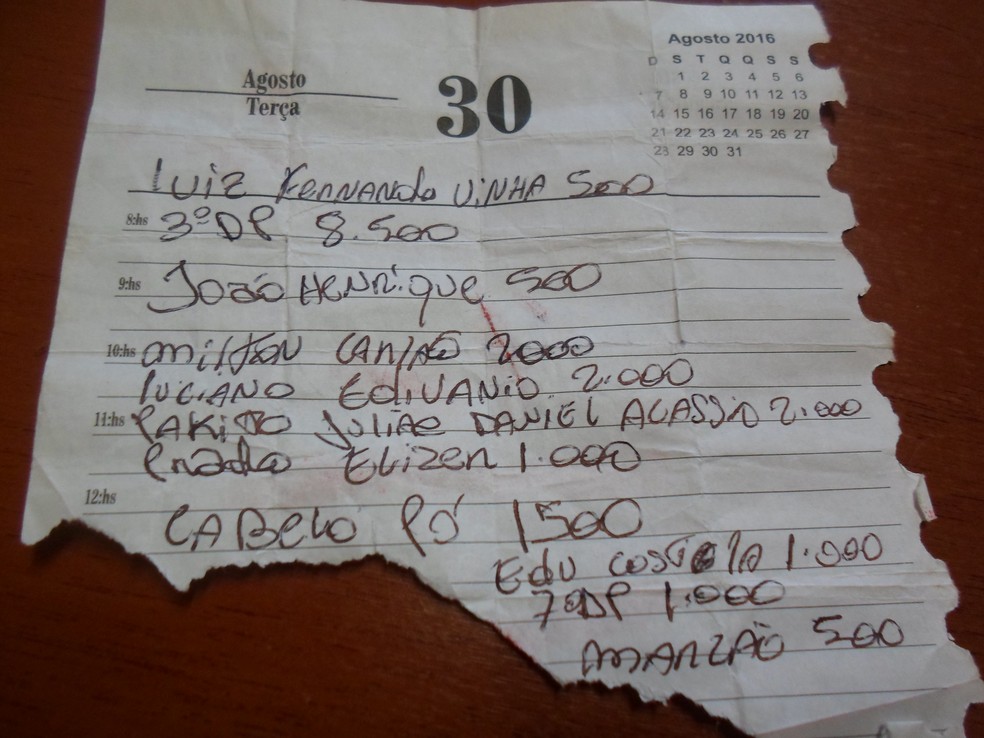 Agosto
Terça
30
Agosto 2016
D S T Q Q S S
1 2 3 4 5 6
7 8 9 10 11 12 13
14 15 16 17 18 19 20
21 22 23 24 25 26 27
28 29 30 31
LUIZ FERNANDO VINHA 500
8:hs 3º DP 8.500
9:hs JOÃO HENRIQUE 500
10:hs MILTON 2000
LUCIANO EDIVANIO 2.000
11:hs PAKITO JULIÃO DANIEL ACASSIO 2.000
ELIZEN 1.000
12:hs
CABELO PÓ 1500
EDU COSTELA 1.000
7º DP 1.000
MANZÃO 500